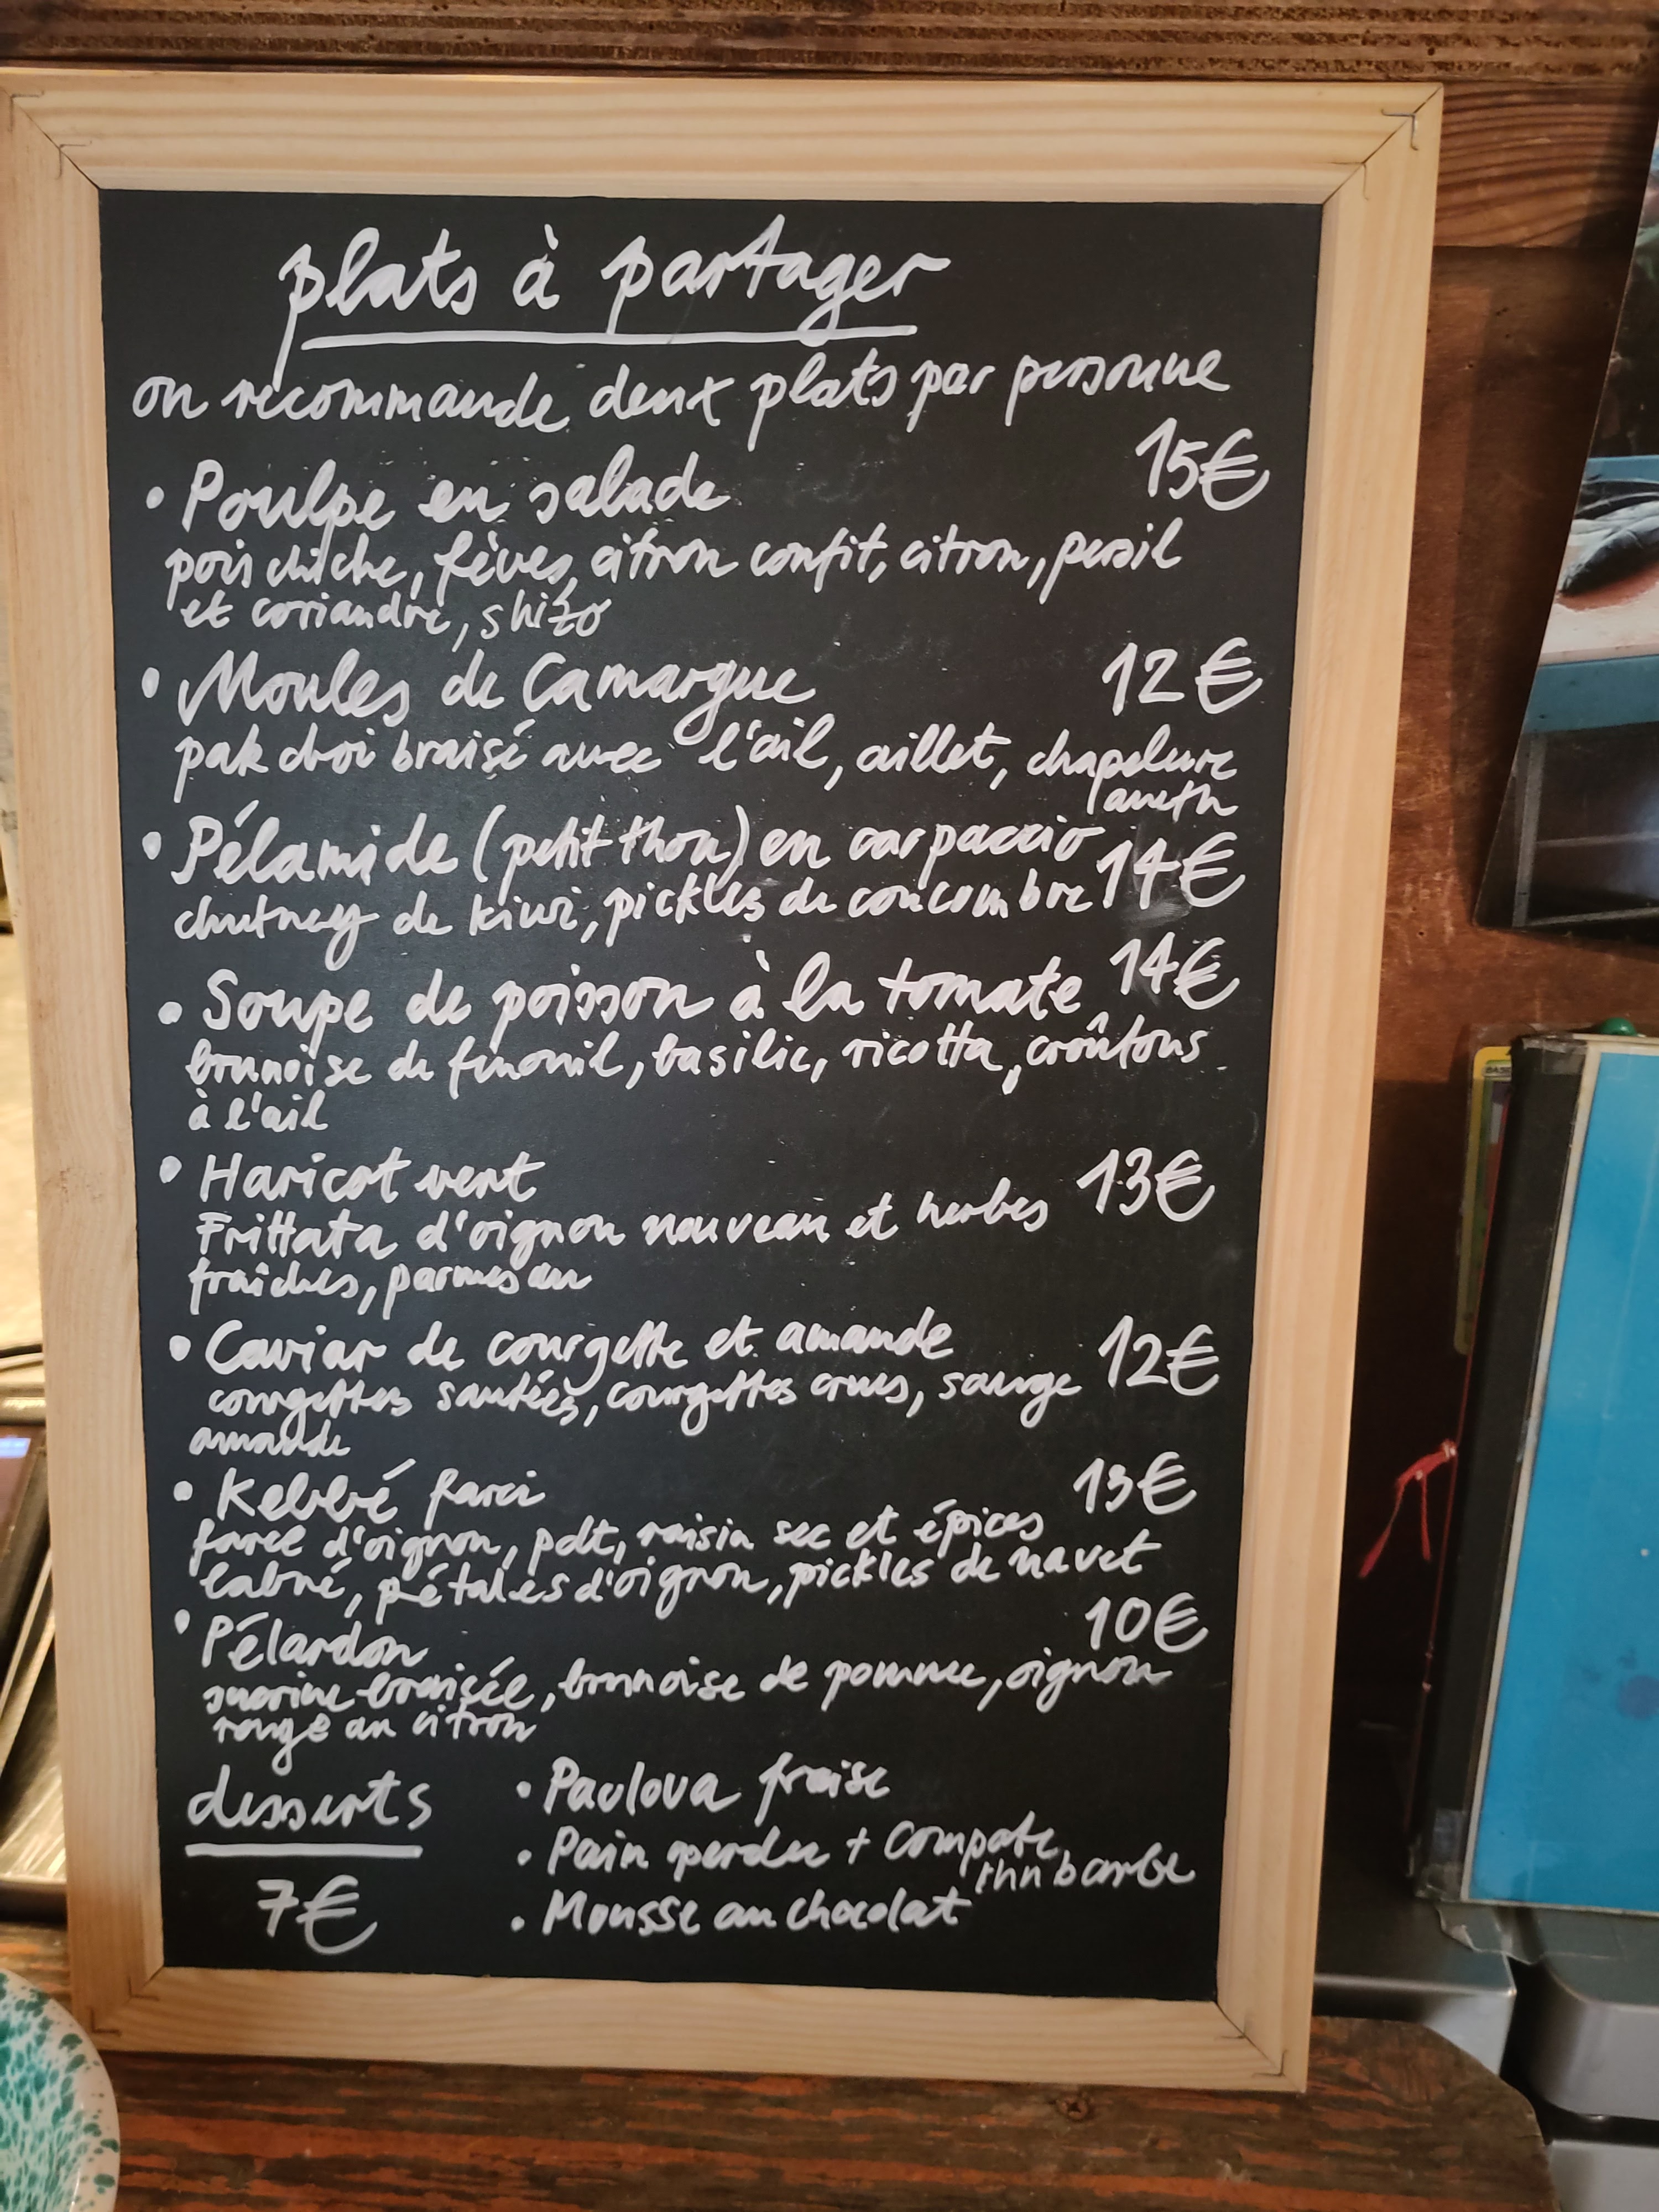 plats à partager
on recommande deux plats par personne
• Poulpe en salade 15€
pois chiche, fèves, citron confit, citron, persil
et coriandre, shizo
• Moules de Camargue 12€
pak choi braisé avec l'ail, aillet, chapelure
aneth
• Pélamide (petit thon) en carpaccio 14€
chutney de kiwi, pickles de concombre
• Soupe de poisson à la tomate 14€
brunoise de fenouil, basilic, ricotta, croûtons
à l'ail
• Haricot vert 13€
Frittata d'oignon nouveau et herbes
fraîches, parmesan
• Caviar de courgette et amande 12€
courgettes sautées, courgettes crues, sauge
amande
• Kebbé farci 13€
farce d'oignon, pdt, raisin sec et épices
labné, pétales d'oignon, pickles de navet
• Pélardon 10€
sucrine braisée, brunoise de pomme, oignon
rouge au citron
desserts
7€
• Pavlova fraise
• Pain perdu + compote
rhubarbe
• Mousse au chocolat